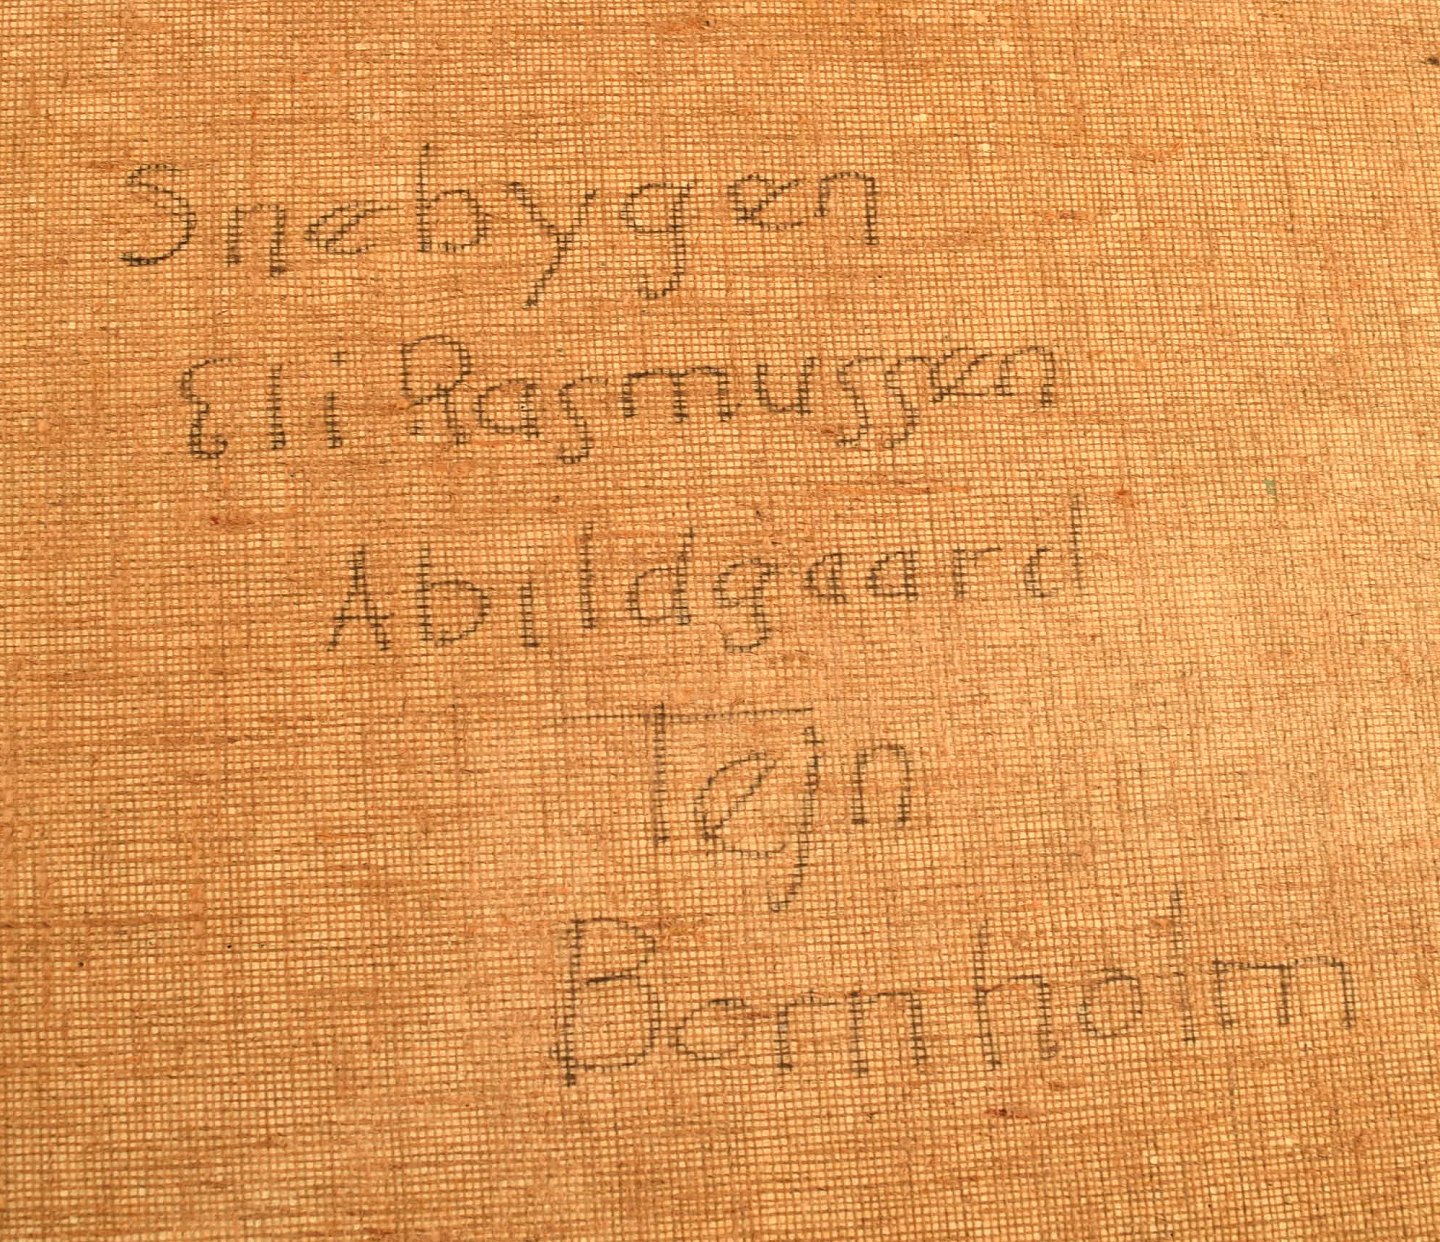 Snebygen
Eli Rasmussen
Abildgaard
Tejn
Bornholm